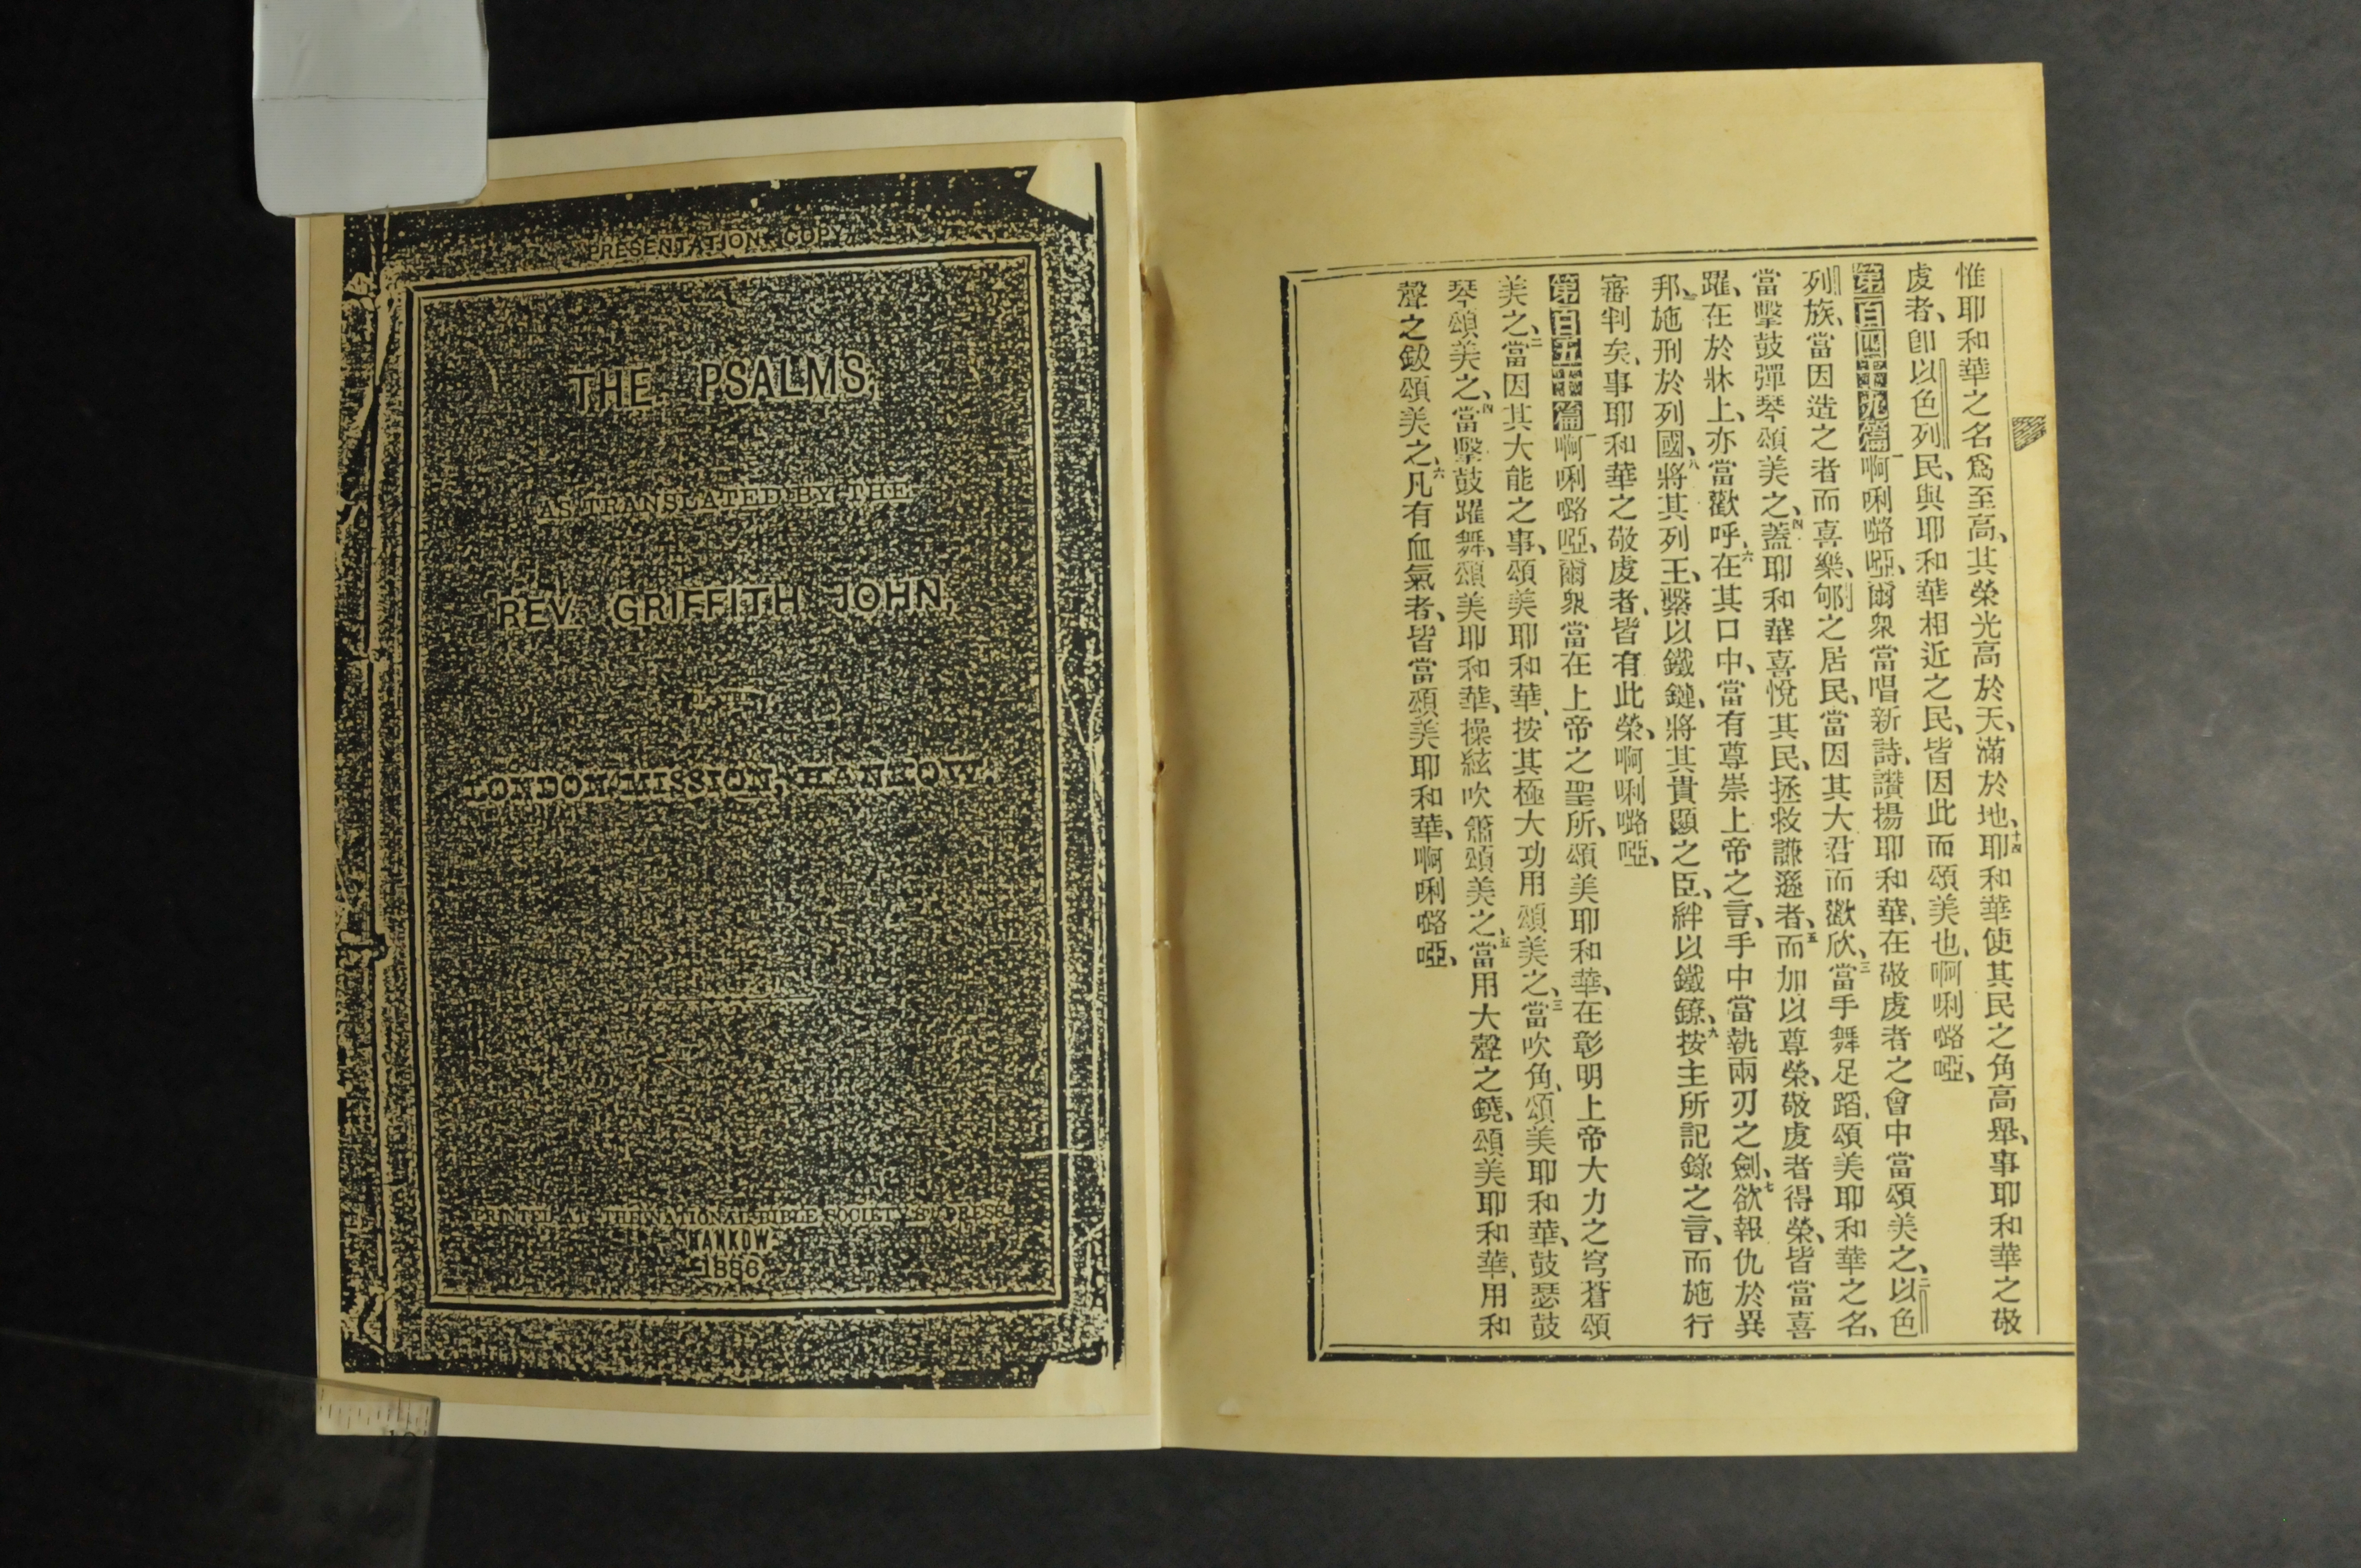 PRESENTATION COPY
THE PSALMS,
AS TRANSLATED BY THE
REV. GRIFFITH JOHN,
OF THE
LONDON MISSION, HANKOW.
PRINTED AT THE NATIONAL BIBLE SOCIETY'S PRESS
HANKOW
1886
惟耶和華之名爲至高、其榮光高於天、滿於地、十四耶和華使其民之角高舉、事耶和華之敬
虔者、卽以色列民、與耶和華相近之民、皆因此而頌美也、啊唎嚕啞、
第一百四十九篇一啊唎嚕啞、爾衆當唱新詩、讚揚耶和華、在敬虔者之會中當頌美之、二以色
列族、當因造之者而喜樂、郇之居民、當因其大君而歡欣、三當手舞足蹈、頌美耶和華之名、
當擊鼓彈琴頌美之、四蓋耶和華喜悅其民、拯救謙遜者、五而加以尊榮、敬虔者得榮、皆當喜
躍、在於牀上、亦當歡呼、六在其口中、當有尊崇上帝之言、手中當執兩刃之劍、七欲報仇於異
邦、施刑於列國、八將其列王、繫以鐵鏈、將其貴顯之臣、絆以鐵鐐、九按主所記錄之言、而施行
審判矣、事耶和華之敬虔者、皆有此榮、啊唎嚕啞、
第一百五十篇一啊唎嚕啞、爾衆當在上帝之聖所、頌美耶和華、在彰明上帝大力之穹蒼頌
美之、二當因其大能之事、頌美耶和華、按其極大功用頌美之、三當吹角、頌美耶和華、鼓瑟鼓
琴頌美之、四當擊鼓躍舞、頌美耶和華、操絃吹簫頌美之、五當用大聲之鐃、頌美耶和華、用和
聲之鈸頌美之、六凡有血氣者、皆當頌美耶和華、啊唎嚕啞、